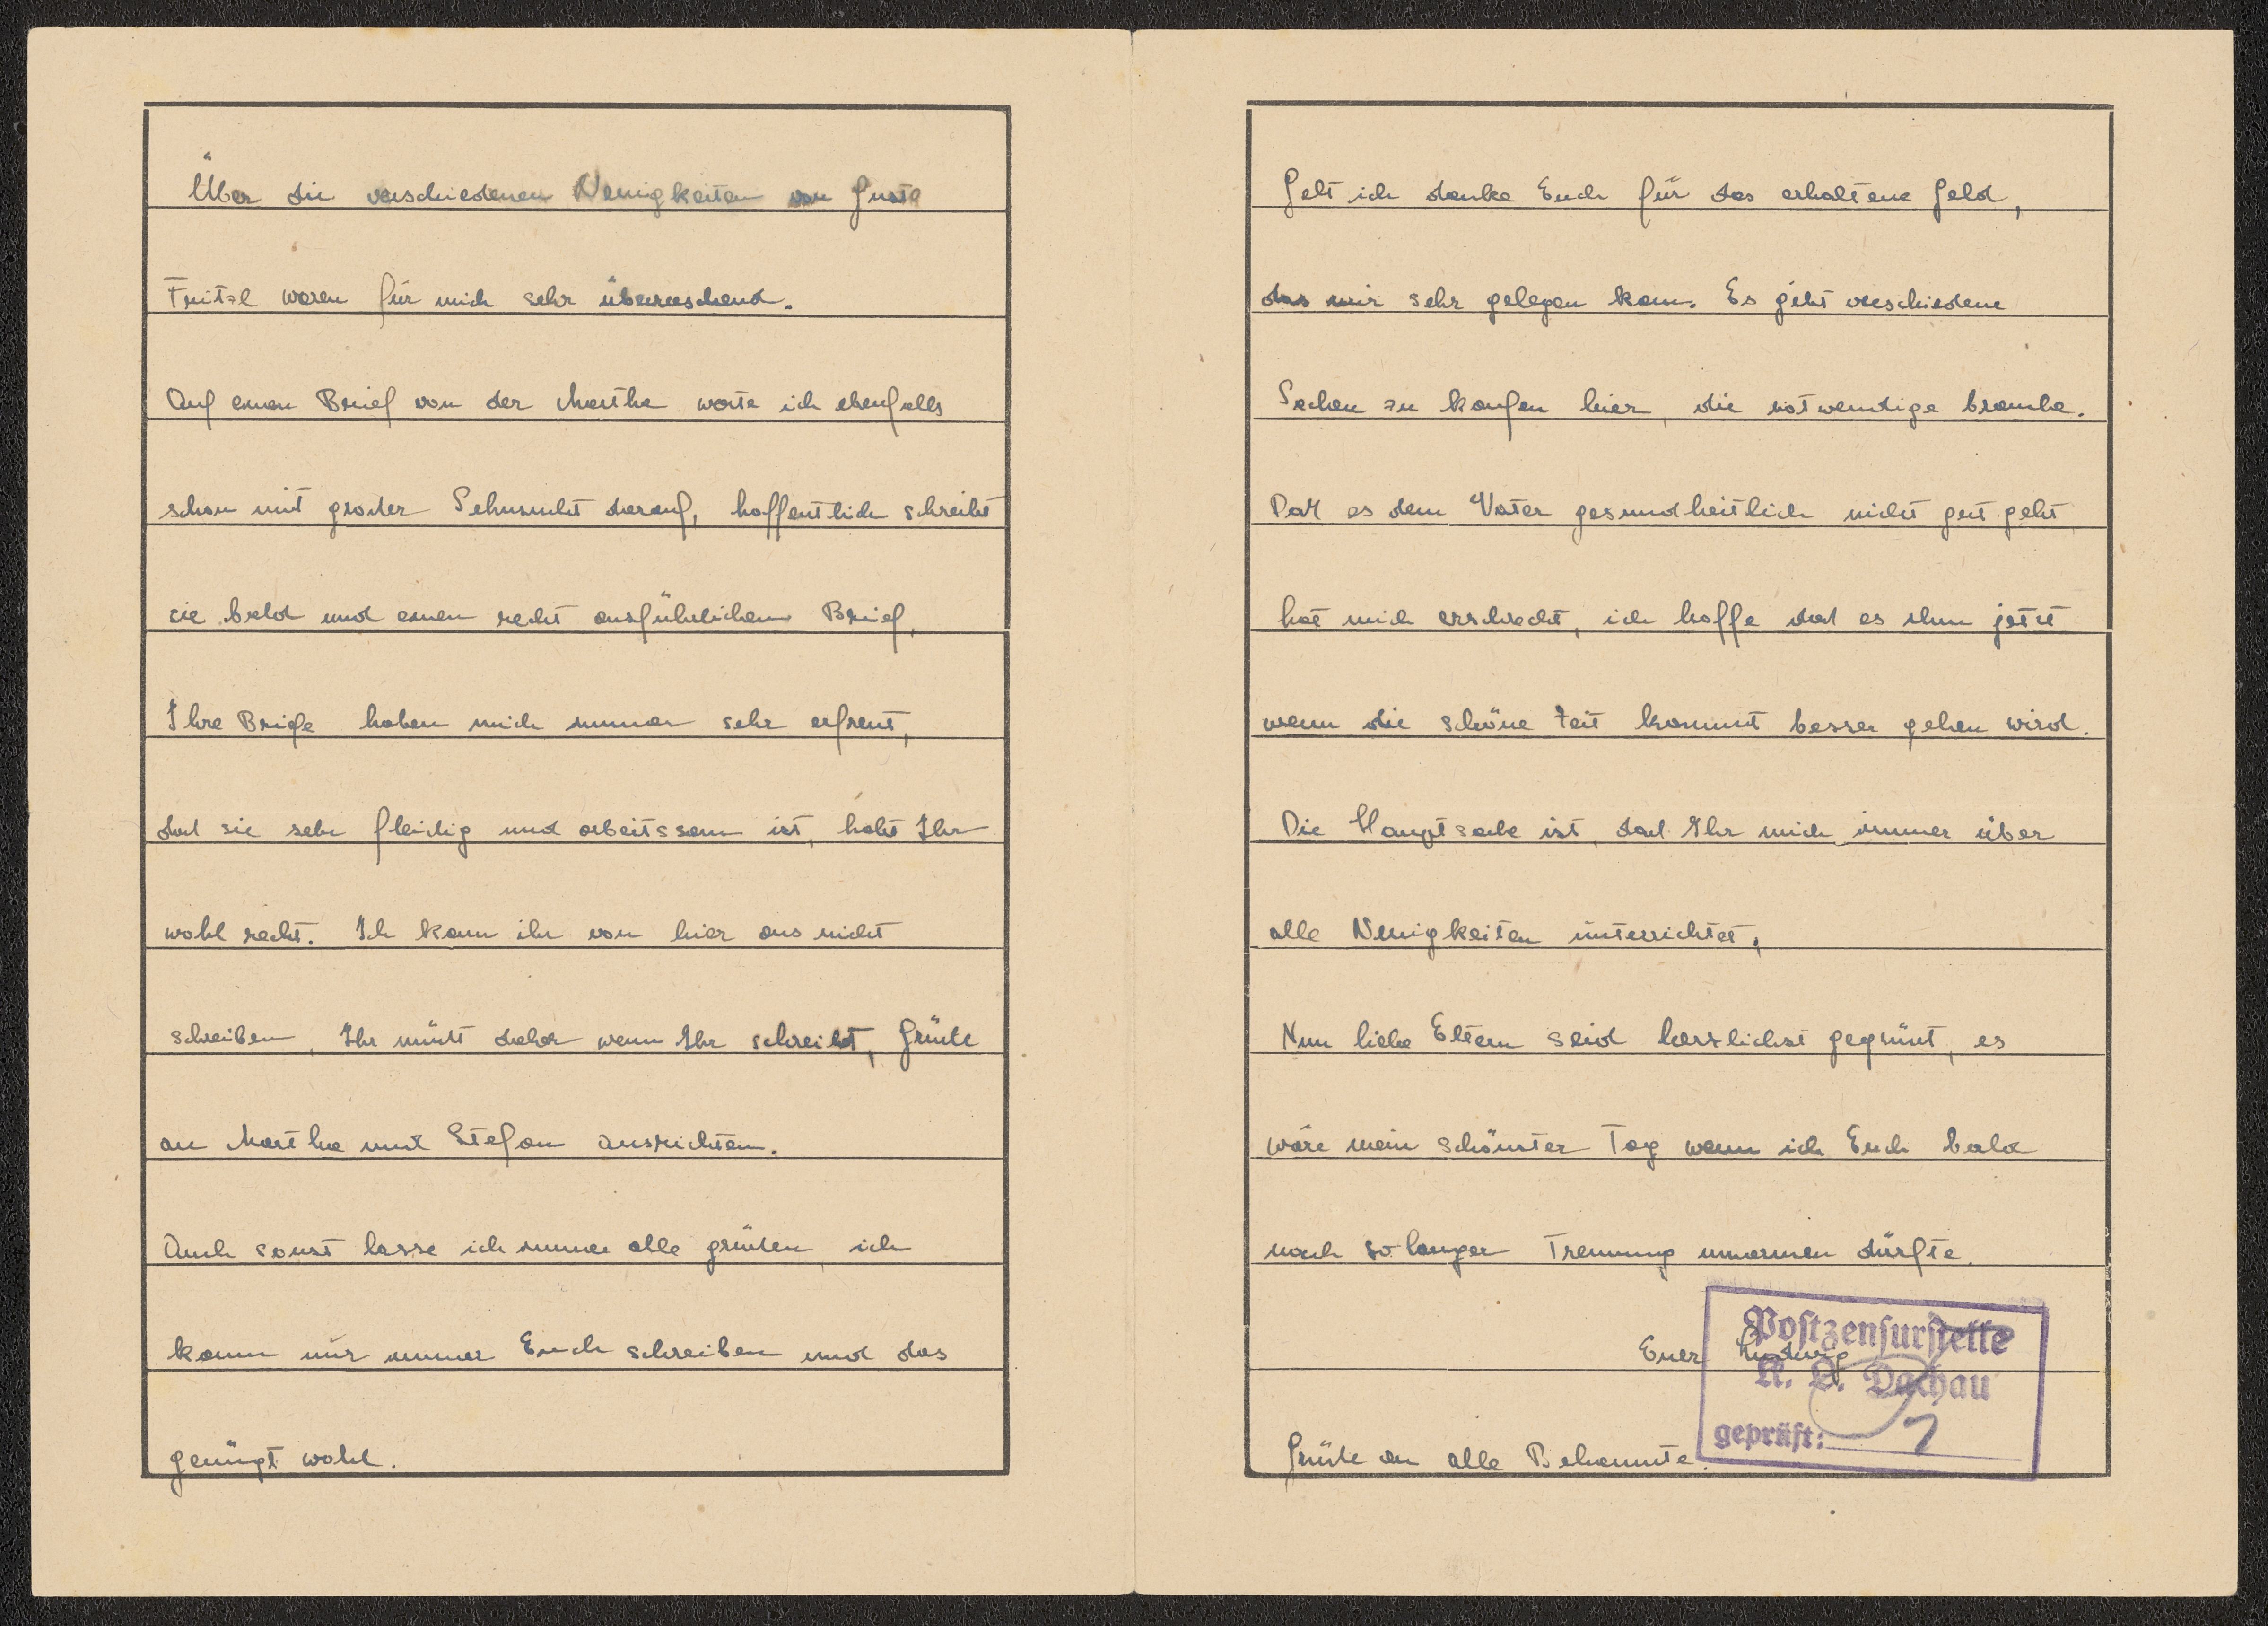 Über die verschiedenen Neuigkeiten von Guste
Fritzl waren für mich sehr überraschend.
Auf einen Brief von der Martha warte ich ebenfalls
schon mit großer Sehnsucht darauf, hoffentlich schreibt
sie bald und einen recht ausführlichen Brief,
Ihre Briefe haben mich immer sehr erfreut,
daß sie sehr fleißig und arbeitssam ist, habt Ihr
wohl recht. Ich kann ihr von hier aus nicht
schreiben, Ihr müßt daher wenn Ihr schreibt, Grüße
an Martha und Stefan ausrichten.
Auch sonst lasse ich immer alle grüßen, ich
kann nur immer Euch schreiben und das
genügt wohl.
Gelt ich danke Euch für das erhaltene Geld,
das mir sehr gelegen kam. Es gibt verschiedene
Sachen zu kaufen hier, die notwendige brauche.
Daß es dem Vater gesundheitlich nicht gut geht,
hat mich erschreckt, ich hoffe daß es ihm jetzt
wenn die schöne Zeit kommt besser gehen wird.
Die Hauptsache ist, daß Ihr mich immer über
alle Neuigkeiten unterrichtet,
Nun liebe Eltern seid herzlichst gegrüßt, es
wäre mein schönster Tag wenn ich Euch bald
nach so langer Trennung umarmen dürfte.
Euer Ludwig
Grüße an alle Bekannte.
Postzensurstelle
K. L. Dachau
geprüft: 1